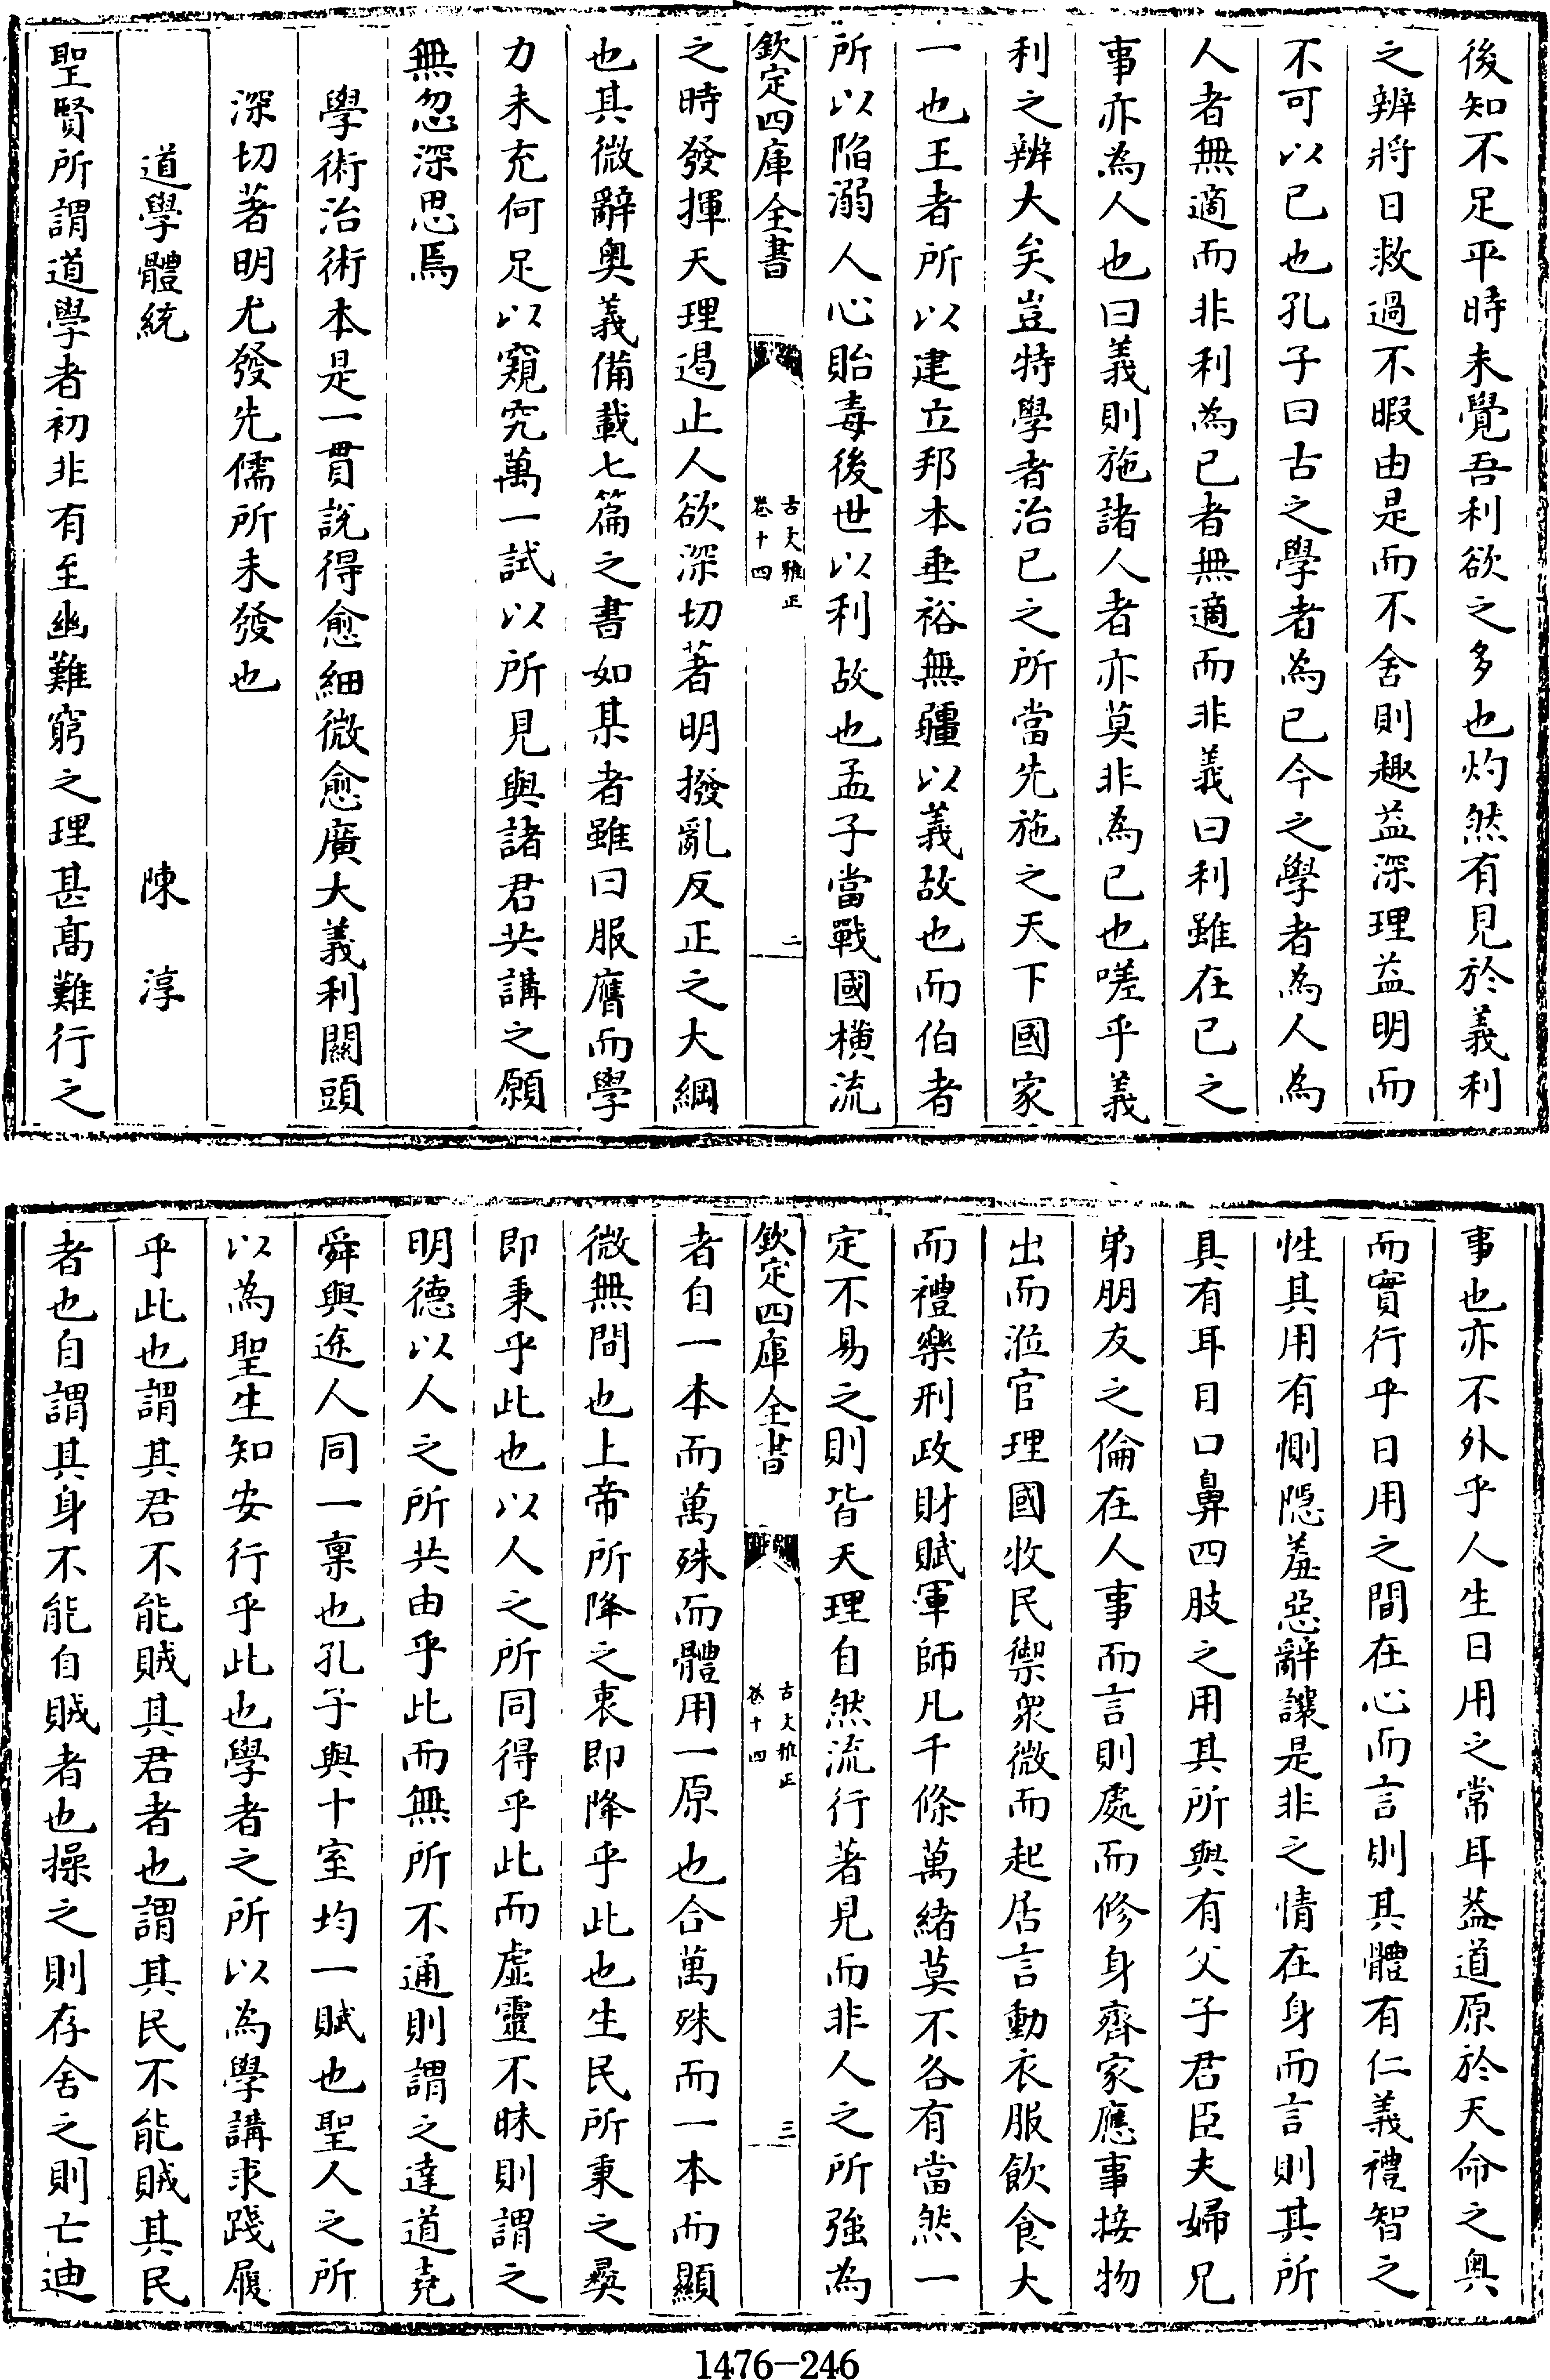 後知不足平時未覺吾利欲之多也灼然有見於義利
之辨將日救過不暇由是而不舍則趣益深理益明而
不可以已也孔子曰古之學者為已今之學者為人為
人者無適而非利為已者無適而非義曰利雖在已之
事亦為人也曰義則施諸人者亦莫非為已也嗟乎義
利之辨大矣豈特學者治已之所當先施之天下國家
一也王者所以建立邦本垂裕無疆以義故也而伯者
所以陷溺人心貽毒後世以利故也孟子當戰國橫流
欽定四庫全書
古文雅正
卷十四
二
之時發揮天理遏止人欲深切著明撥亂反正之大綱
也其微辭奧義備載七篇之書如某者雖曰服膺而學
力未充何足以窺究萬一試以所見與諸君共講之願
無忽深思焉
學術治術本是一貫說得愈細微愈廣大義利關頭
深切著明尤發先儒所未發也
道學體統
陳淳
聖賢所謂道學者初非有至幽難窮之理甚高難行之
事也亦不外乎人生日用之常耳葢道原於天命之奧
而實行乎日用之間在心而言則其體有仁義禮智之
性其用有惻隱羞惡辭讓是非之情在身而言則其所
具有耳目口鼻四肢之用其所與有父子君臣夫婦兄
弟朋友之倫在人事而言則處而修身齊家應事接物
出而涖官理國牧民禦衆微而起居言動衣服飲食大
而禮樂刑政財賦軍師凡千條萬緒莫不各有當然一
定不易之則皆天理自然流行著見而非人之所強為
欽定四庫全書
古文雅正
卷十四
三
者自一本而萬殊而體用一原也合萬殊而一本而顯
微無間也上帝所降之衷即降乎此也生民所秉之彞
即秉乎此也以人之所同得乎此而虛靈不昧則謂之
明德以人之所共由乎此而無所不通則謂之達道堯
舜與途人同一稟也孔子與十室均一賦也聖人之所
以為聖生知安行乎此也學者之所以為學講求踐履
乎此也謂其君不能賊其君者也謂其民不能賊其民
者也自謂其身不能自賊者也操之則存舍之則亡迪
1476-246